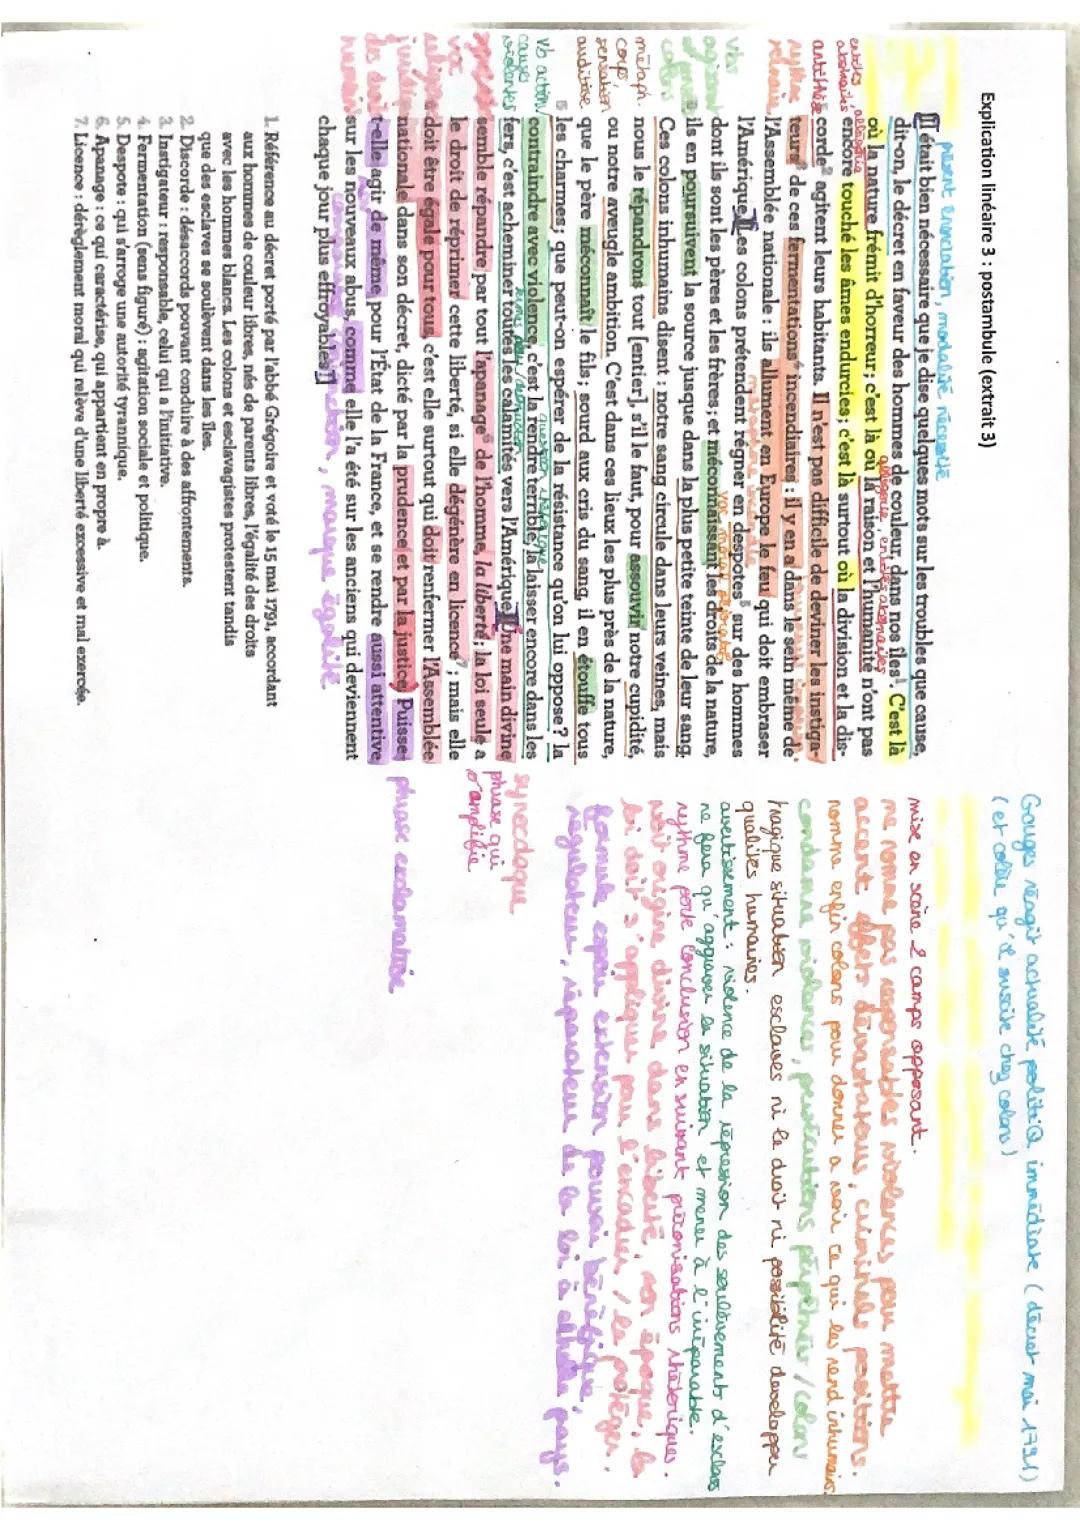 Explication linéaire 3 : postambule (extrait 3)
présent énonciation, modalité nécessité
Il était bien nécessaire que je dise quelques mots sur les troubles que cause,
dit-on, le décret en faveur des hommes de couleur, dans nos îles¹. C'est là
où la nature frémit d'horreur ; c'est là où la raison et l'humanité n'ont pas
allégorie entités abstraites
entités abstraites allégorie
encore touché les âmes endurcies ; c'est là surtout où la division et la dis-
antithèse
corde² agitent leurs habitants. Il n'est pas difficile de deviner les instiga-
rythme
teurs³ de ces fermentations⁴ incendiaires : il y en a dans le sein même de
l'Assemblée nationale : ils allument en Europe le feu qui doit embraser
l'Amérique. Les colons prétendent régner en despotes⁵ sur des hommes
dont ils sont les pères et les frères ; et méconnaissant les droits de la nature,
ils en poursuivent la source jusque dans la plus petite teinte de leur sang.
colons
Ces colons inhumains disent : notre sang circule dans leurs veines, mais
métaph.
nous le répandrons tout [entier], s'il le faut, pour assouvir notre cupidité,
corps,
ou notre aveugle ambition. C'est dans ces lieux les plus près de la nature,
sensation
auditive
que le père méconnaît le fils ; sourd aux cris du sang, il en étouffe tous
les charmes ; que peut-on espérer de la résistance qu'on lui oppose ? la
question rhétorique
vb action
contraindre avec violence, c'est la rendre terrible, la laisser encore dans les
causes
violentes
fers, c'est acheminer toutes les calamités vers l'Amérique. Une main divine
semble répandre par tout l'apanage⁶ de l'homme, la liberté ; la loi seule a
le droit de réprimer cette liberté, si elle dégénère en licence⁷ ; mais elle
doit être égale pour tous, c'est elle surtout qui doit renfermer l'Assemblée
nationale dans son décret, dicté par la prudence et par la justice. Puisse-
t-elle agir de même pour l'État de la France, et se rendre aussi attentive
sur les nouveaux abus, comme elle l'a été sur les anciens qui deviennent
chaque jour plus effroyables !
, marque égalité
1. Référence au décret porté par l'abbé Grégoire et voté le 15 mai 1791, accordant
aux hommes de couleur libres, nés de parents libres, l'égalité des droits
avec les hommes blancs. Les colons et esclavagistes protestent tandis
que des esclaves se soulèvent dans les îles.
2. Discorde : désaccords pouvant conduire à des affrontements.
3. Instigateur : responsable, celui qui a l'initiative.
4. Fermentation (sens figuré) : agitation sociale et politique.
5. Despote : qui s'arroge une autorité tyrannique.
6. Apanage : ce qui caractérise, qui appartient en propre à.
7. Licence : dérèglement moral qui relève d'une liberté excessive et mal exercée.
Gouges réagit actualité politiQ immédiate (décret mai 1791)
(et colère qu'il suscite chez colons)
mise en scène 2 camps opposant.
ne nomme pas responsables violences pour mettre
accent effets dévastateurs, criminels positions.
nomme enfin colons pour donner a voir ce qui les rend inhumains
condamne violences, persécutions perpétrées / colons
tragique situation esclaves ni le droit ni possibilité developper
qualités humaines.
avertissement : violence de la répression des soulèvements d'esclaves
ne fera qu'aggraver la situation et mener à l'irréparable.
rythme porte conclusion en suivant préconisations rhétoriques.
voit origine divine dans liberté, son époque, la
loi doit s'appliquer pour l'encadrer, la protéger.
formule espoir extension pouvoir bénéfique,
régulateur, réparateur de la loi à
pays.
synecdoque
phrase qui
s'amplifie
phrase exclamative